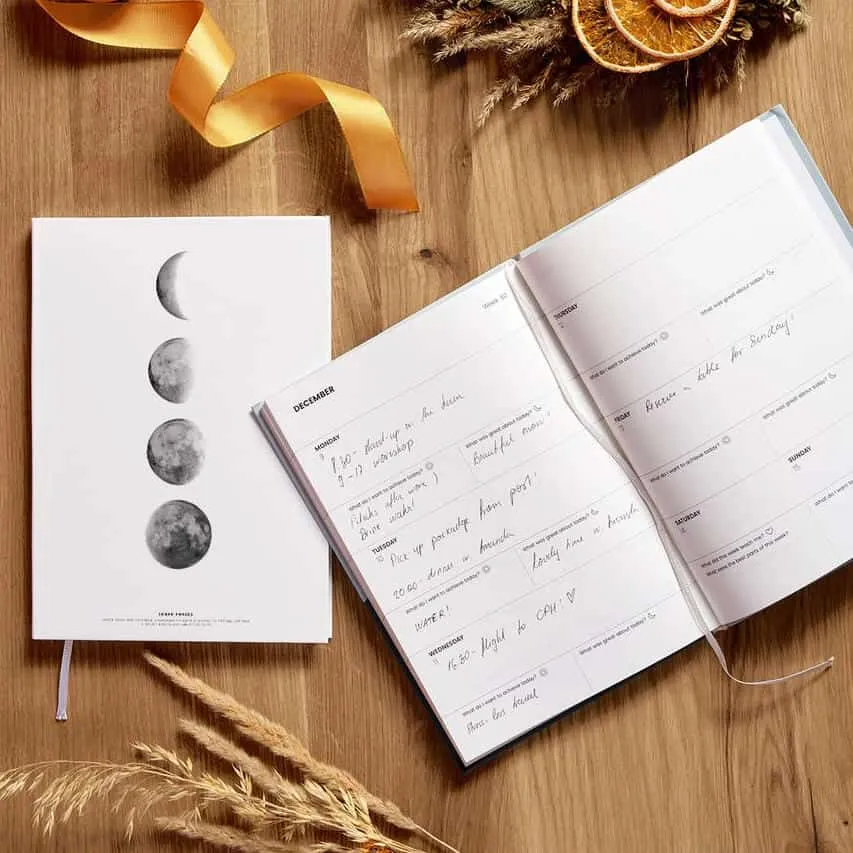 LUNAR PHASES
Week 50
DECEMBER
MONDAY
9
8.30 - Stand-up w. the team
9-17 workshop
What do I want to achieve today?
What was great about today?
Pilates after work :)
Drink water!
Beautiful moon!
TUESDAY
10
Pick up package from post!
20.00 - dinner w. Amanda
What do I want to achieve today?
What was great about today?
WATER!
Lovely time w. Amanda
WEDNESDAY
11
16.30 - flight to CPH! ♡
What do I want to achieve today?
What was great about today?
THURSDAY
12
What do I want to achieve today?
What was great about today?
FRIDAY
13
Reserve a table for Sunday!
What do I want to achieve today?
What was great about today?
SATURDAY
14
SUNDAY
15
What did this week teach me? ♡
What were the best parts of this week?
What do I want to